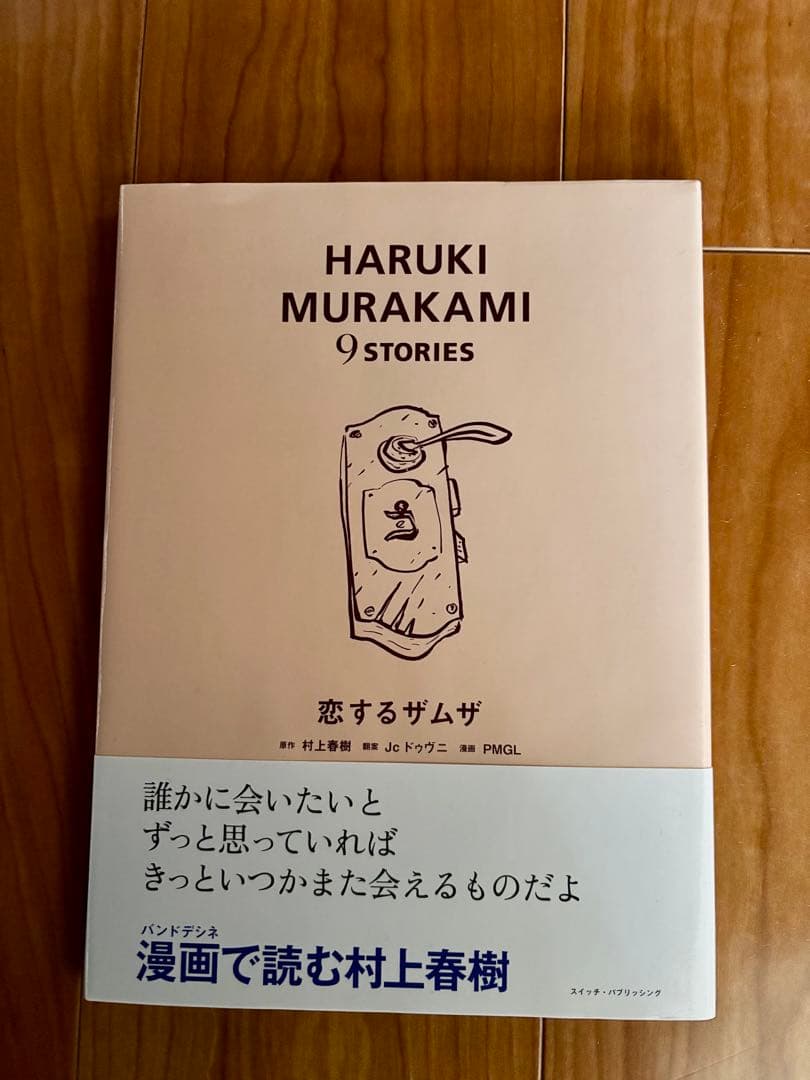 HARUKI
MURAKAMI
9 STORIES
恋するザムザ
原作 村上春樹 翻案 Jc ドゥヴニ 漫画 PMGL
誰かに会いたいと
ずっと思っていれば
きっといつかまた会えるものだよ
バンドデシネ
漫画で読む村上春樹
スイッチ・パブリッシング